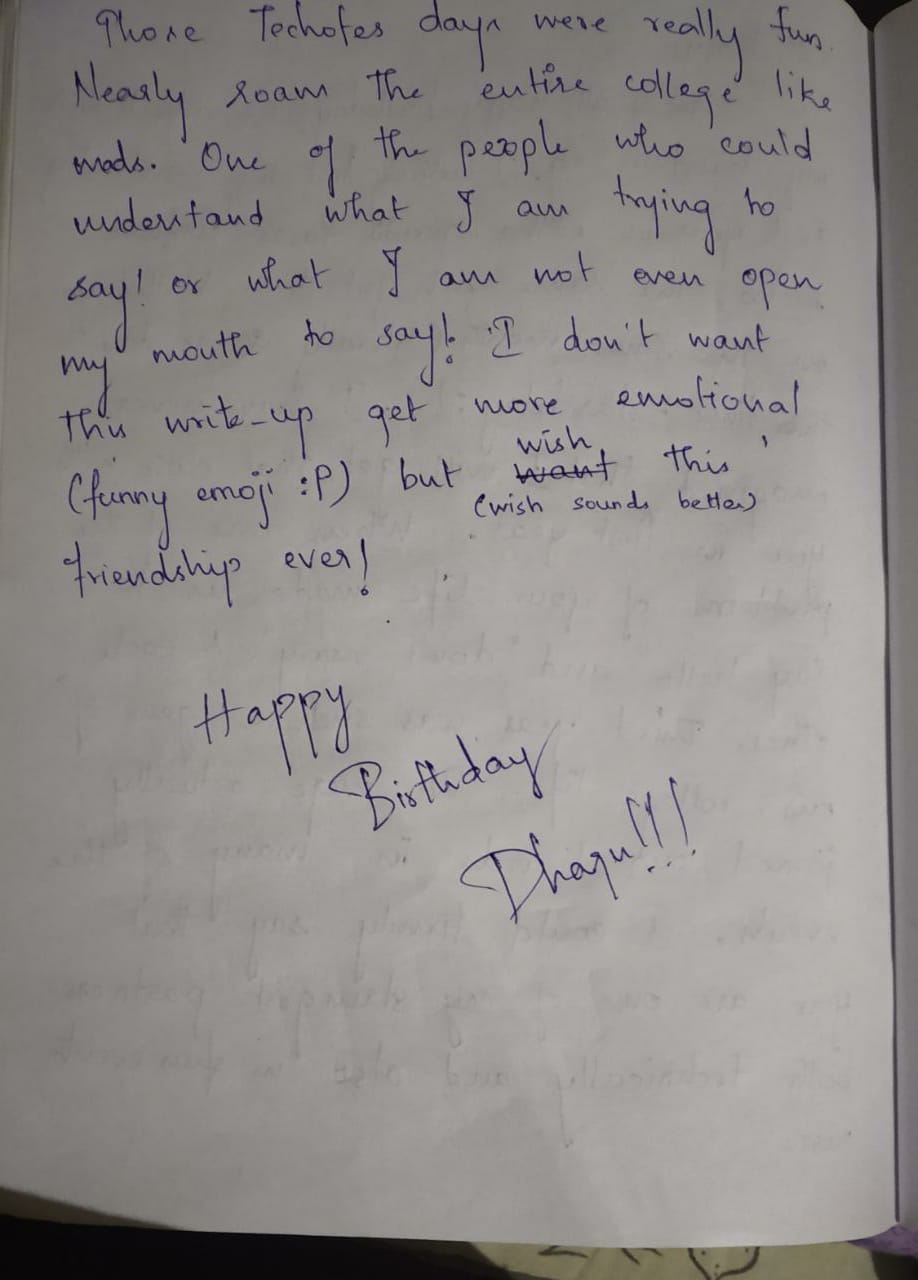 Those Techofes days were really fun.
Nearly roam the entire college like
mads. One of the people who could
understand what I am trying to
say! or what I am not even open
my mouth to say! I don't want
this write-up get more emotional
(funny emoji :P) but want wish this
(wish sounds better)
friendship ever!
Happy
Birthday
Dhagu!!!